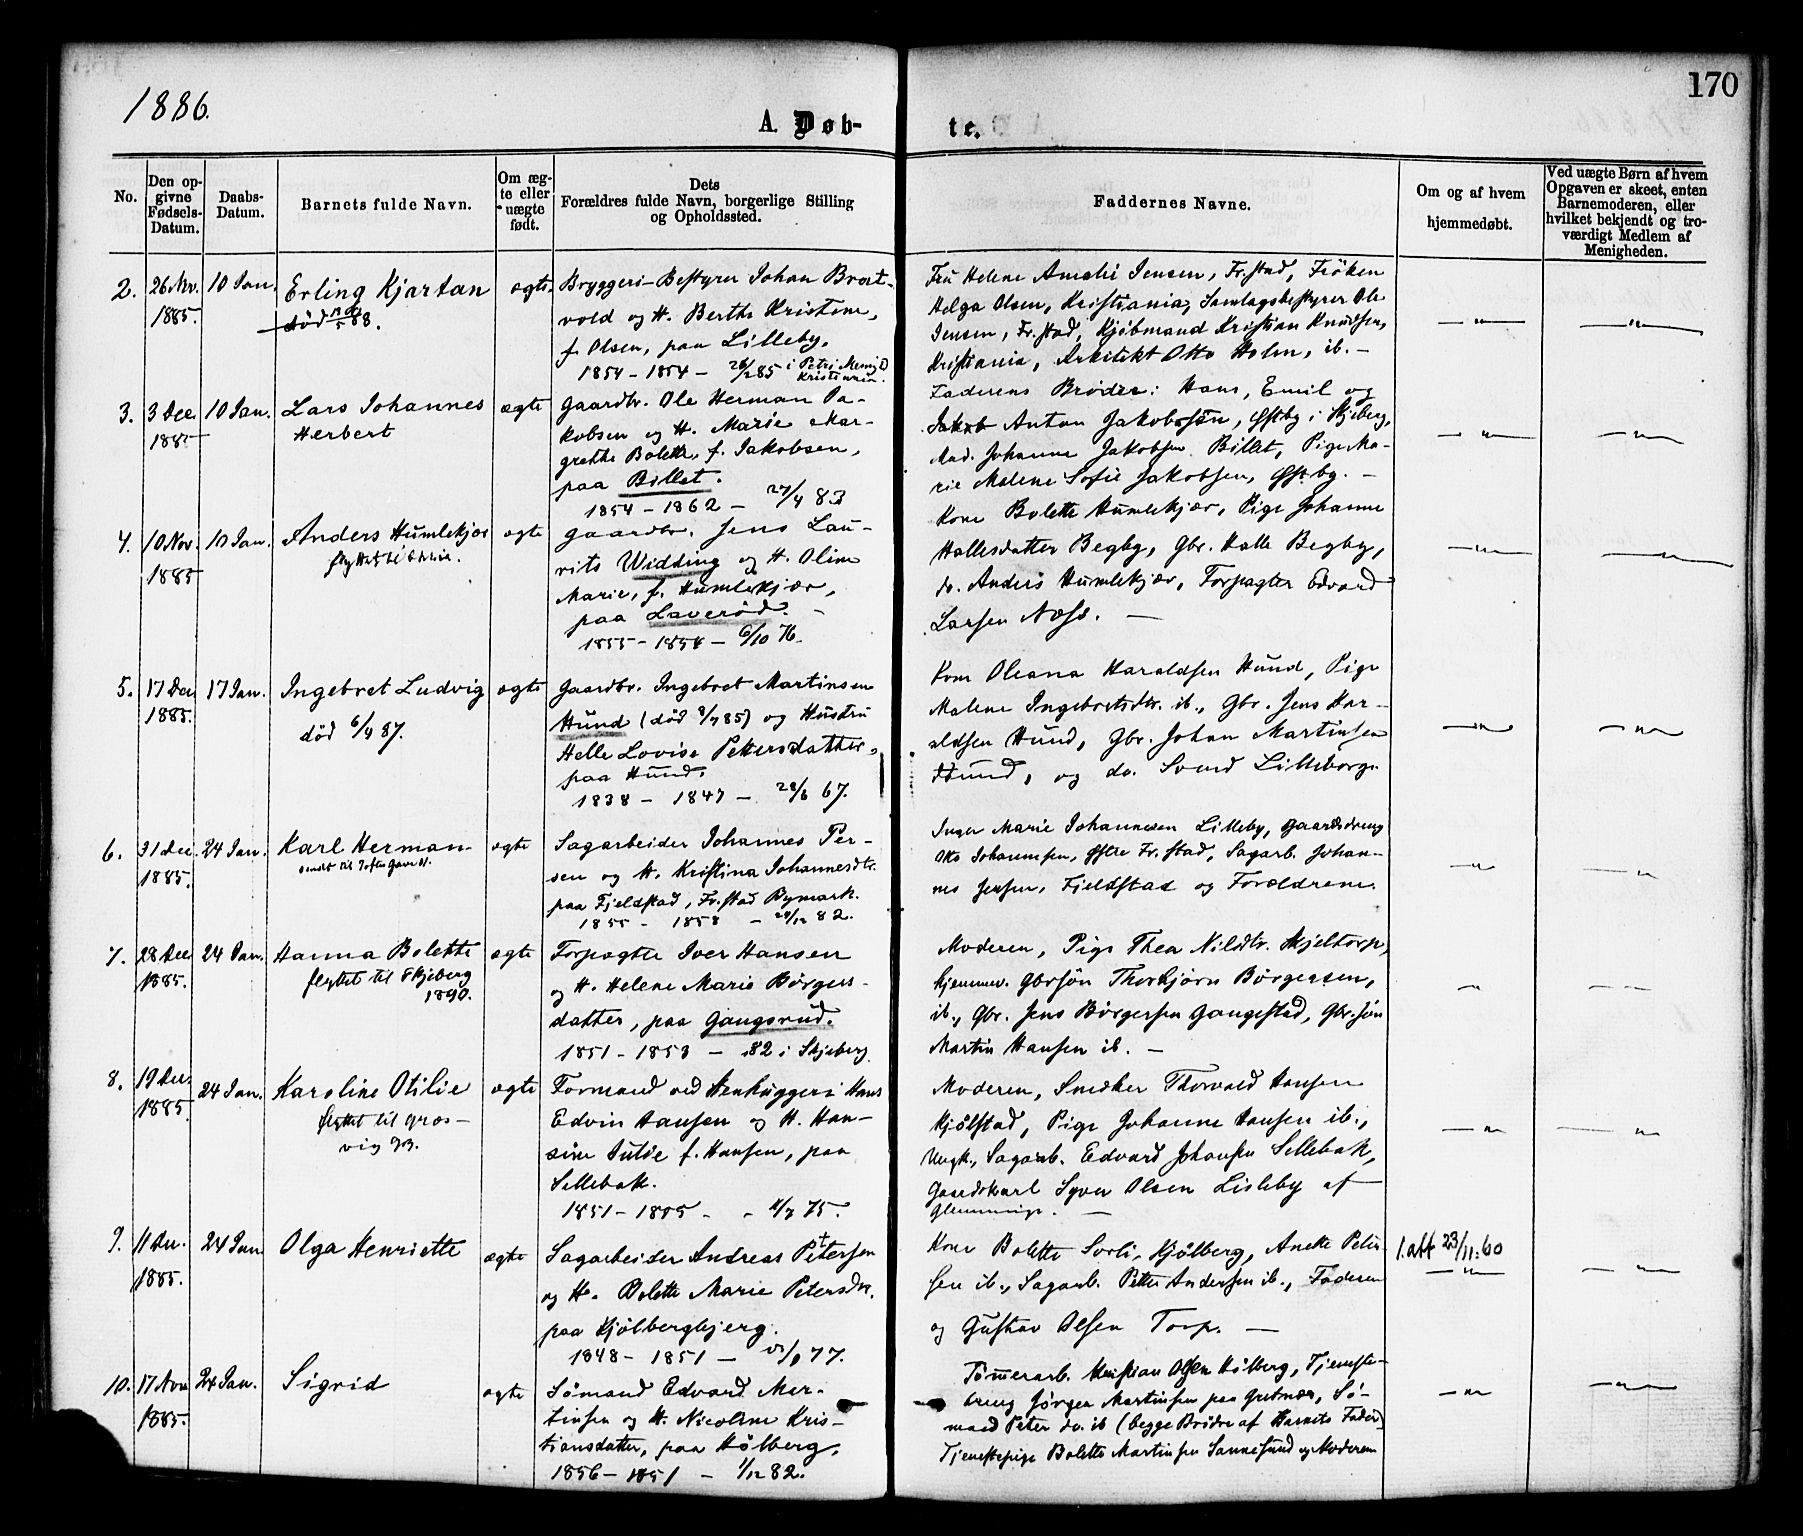 170
1886.
A. Døb-
te.
No.
Den op-
givne
Fødsels-
Datum.
Daabs-
Datum.
Barnets fulde Navn.
Om æg-
te eller
uægte
født.
Dets
Forældres fulde Navn, borgerlige Stilling
og Opholdssted.
Faddernes Navne.
Om og af hvem
hjemmedøbt.
Ved uægte Børn af hvem
Opgaven er skeet, enten
Barnemoderen, eller
hvilket bekjendt og tro-
værdigt Medlem af
Menigheden.
2.
26 Nov.
1885.
10 Jan.
Erling Kjartan
død 88.
ægte
Bryggeri-Bestyrer Johan Brat-
vold og H. Berthe Kristine,
f. Olsen, paa Lilleby.
1854 - 1854 - 85 i Petri Menigh
Kristiania.
Fru Helene Amalie Jensen, Fr.stad, Frøken
Helga Olsen, Kristiania, Samlagsbestyrer Ole
Jensen, Fr.stad, Kjøbmand Kristian Knudsen,
Kristiania, Arkitekt Otto Holm, ib. -
3.
3 Dec.
1885
10 Jan.
Lars Johannes
Herbert
ægte
Gaardbr. Ole Herman Ja-
kobsen og H. Marie Mar-
grethe Bolette, f. Jakobsen,
paa Billet.
1854 - 1862 - 27/4 83
Faderens Brødre: Hans, Emil og
Jakob Anton Jakobsen, Østby i Skjeberg,
Mad. Johanne Jakobsen Billet, Pige Ma-
rie Malene Sofie Jakobsen, Østby. -
4.
10 Nov.
1885
10 Jan.
Anders Humlekjær
flyttet til
ægte
Gaardbr. Jens Lau-
rits Widding og H. Oline
Marie, f. Humlekjær,
paa Laverød. -
1855 - 1854 - 6/10 76.
Kone Bolette Humlekjær, Pige Johanne
Hallesdatter Begby, Gbr. Halle Begby,
do. Anders Humlekjær, Forpagter Edvard
Larsen Næss. -
5.
17 Dec
1885.
17 Jan.
Ingebret Ludvig
død 6/4 87.
ægte
Gaardbr. Ingebret Martinsen
Hund (død 85) og Hustru
Helle Lovise Pettersdatter,
paa Hund.
1838 - 1847 - 28/6 67.
Kone Oleana Haraldsen Hund, Pige
Malene Ingebretsdtr. ib., Gbr. Jens Har-
aldsen Hund, Gbr. Johan Martinsen
Hund, og do. Svend Lilleborge
6.
31 Dec
1885.
24 Jan.
Karl Herman
ægte
Sagarbeider Johannes Per-
sen og H. Kristina Johannesdtr.
paa Fjeldstad, Fr.stad Bymark.
1855 - 1858 - 29/12 82.
Inger Marie Johannesen Lilleby, Gaardsdreng
Otto Johannesen, Østre Fr.stad, Sagarb. Johan-
nes Jensen, Fjeldstad og Forældrene.
7.
28 Dec
1885.
24 Jan.
Hanna Bolette
flyttet til Skjeberg
1890.
ægte
Forpagter Iver Hansen
og H. Helene Marie Børges-
datter, paa Gangsrud.
1851 - 1853 - 82 i Skjeberg
Moderen, Pige Thea Nilsdtr. Skjeltorp,
hjemmev. Gbrsøn Thorbjørn Børgersen,
ib., Gbr. Jens Børgersen Gangestad, Gbr.søn
Martin Hansen ib. -
8.
19 Dec.
1885
24 Jan.
Karoline Otilie
flyttet til Gres-
vig
ægte
Formand ved Stenhuggeri Hans
Edvin Hansen og H. Han-
sine Julie f. Hansen, paa
Sellebak.
1851 - 1855 - 75.
Moderen, Snedker Thorvald Hansen
Kjølstad, Pige Johanne Hansen ib.,
Ungk., Sagarb. Edvard Johansen Sellebak,
Gaardskarl Syver Olsen Lisleby af
Glemminge. -
9.
11 Dec.
1885.
24 Jan
Olga Henriette
ægte
Sagarbeider Andreas Petersen
og H. Bolette Marie Petersdtr.
paa Kjølbergbjerg.
1848 - 1851 - 77.
Kone Bolette Sorli, Kjølberg, Anette Peter-
sen ib., Sagarb. Petter Andersen ib., Faderen
og Gustav Olsen Torp. -
1. att 23/11.60
10.
17 Nov
1885.
24 Jan.
Sigrid
ægte
Sømand Edvard Mar-
tinsen og H. Nicoline Kris-
tiansdatter, paa Hølberg.
1856 - 1851 - 1/12 82.
Tømmerarb. Kristian Olsen Hølberg, Tjeneste-
dreng Jørgen Martinsen paa Gretnæs, Sø-
mand Peter do. ib (begge Brødre af Barnets Fader)
Tjenestepige Bolette Martinsen Sannesund og Moderen